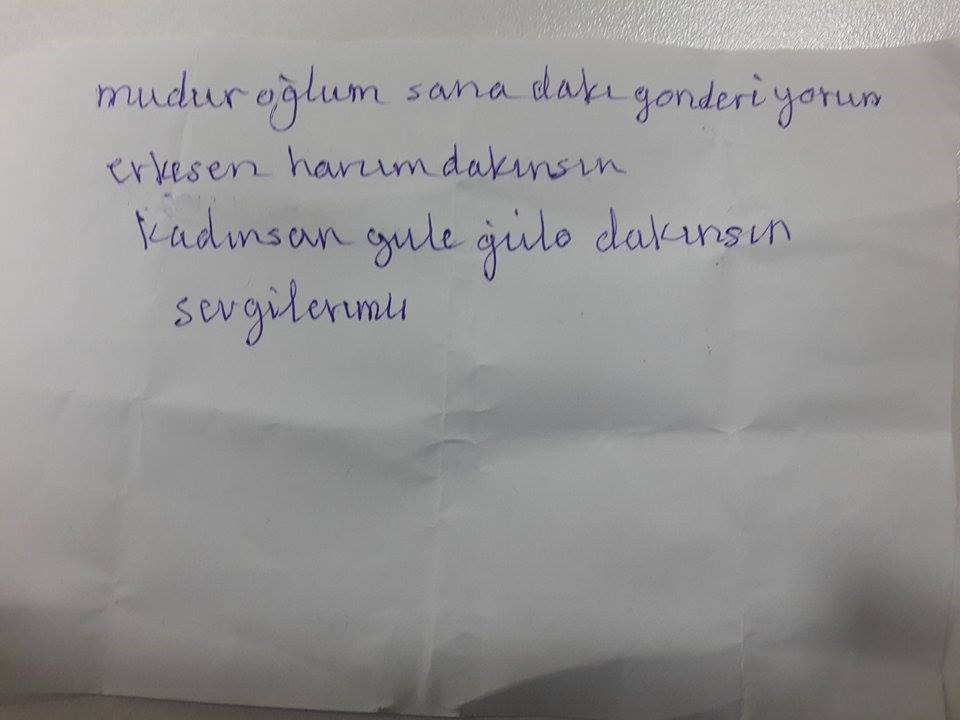 mudur oğlum sana dakı gonderiyorum
erkesen hanım dakınsın
kadınsan gule ğülo dakınsın
sevgilerımlı